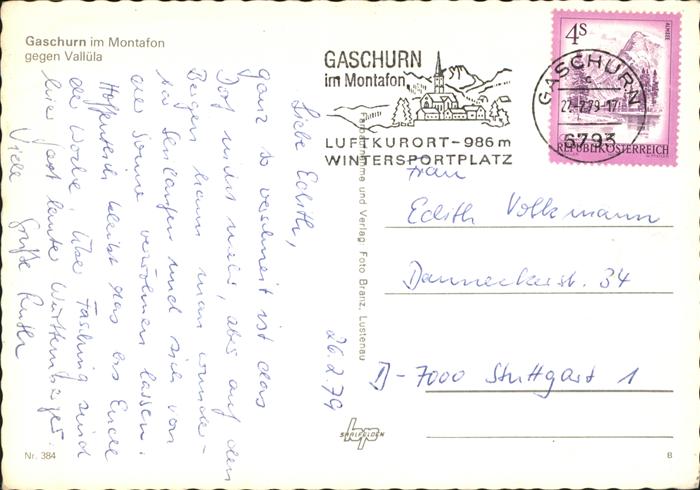 Gaschurn im Montafon
gegen Vallüla
26.2.79
Liebe Edith,
ganz so verschneit ist das
Dorf nicht mehr, aber auf den
Bergen kann man wunder-
bar Skilaufen und sich von
der Sonne verwöhnen lassen.
Hoffentlich bleibt das bis Ende
der Woche. Über Fasching sind
hier fast lauter Württemberger.
Viele Grüße Ruth
Nr. 384
GASCHURN
im Montafon
LUFTKURORT-986 m
WINTERSPORTPLATZ
4S
ALMSEE
REPUBLIK ÖSTERREICH
GASCHURN
c
2.79-17
6793
Farbaufnahme und Verlag: Foto Branz, Lustenau
Frau
Edith Volkmann
Danneckerstr. 34
D-7000 Stuttgart 1
hp
SAALFELDEN
B